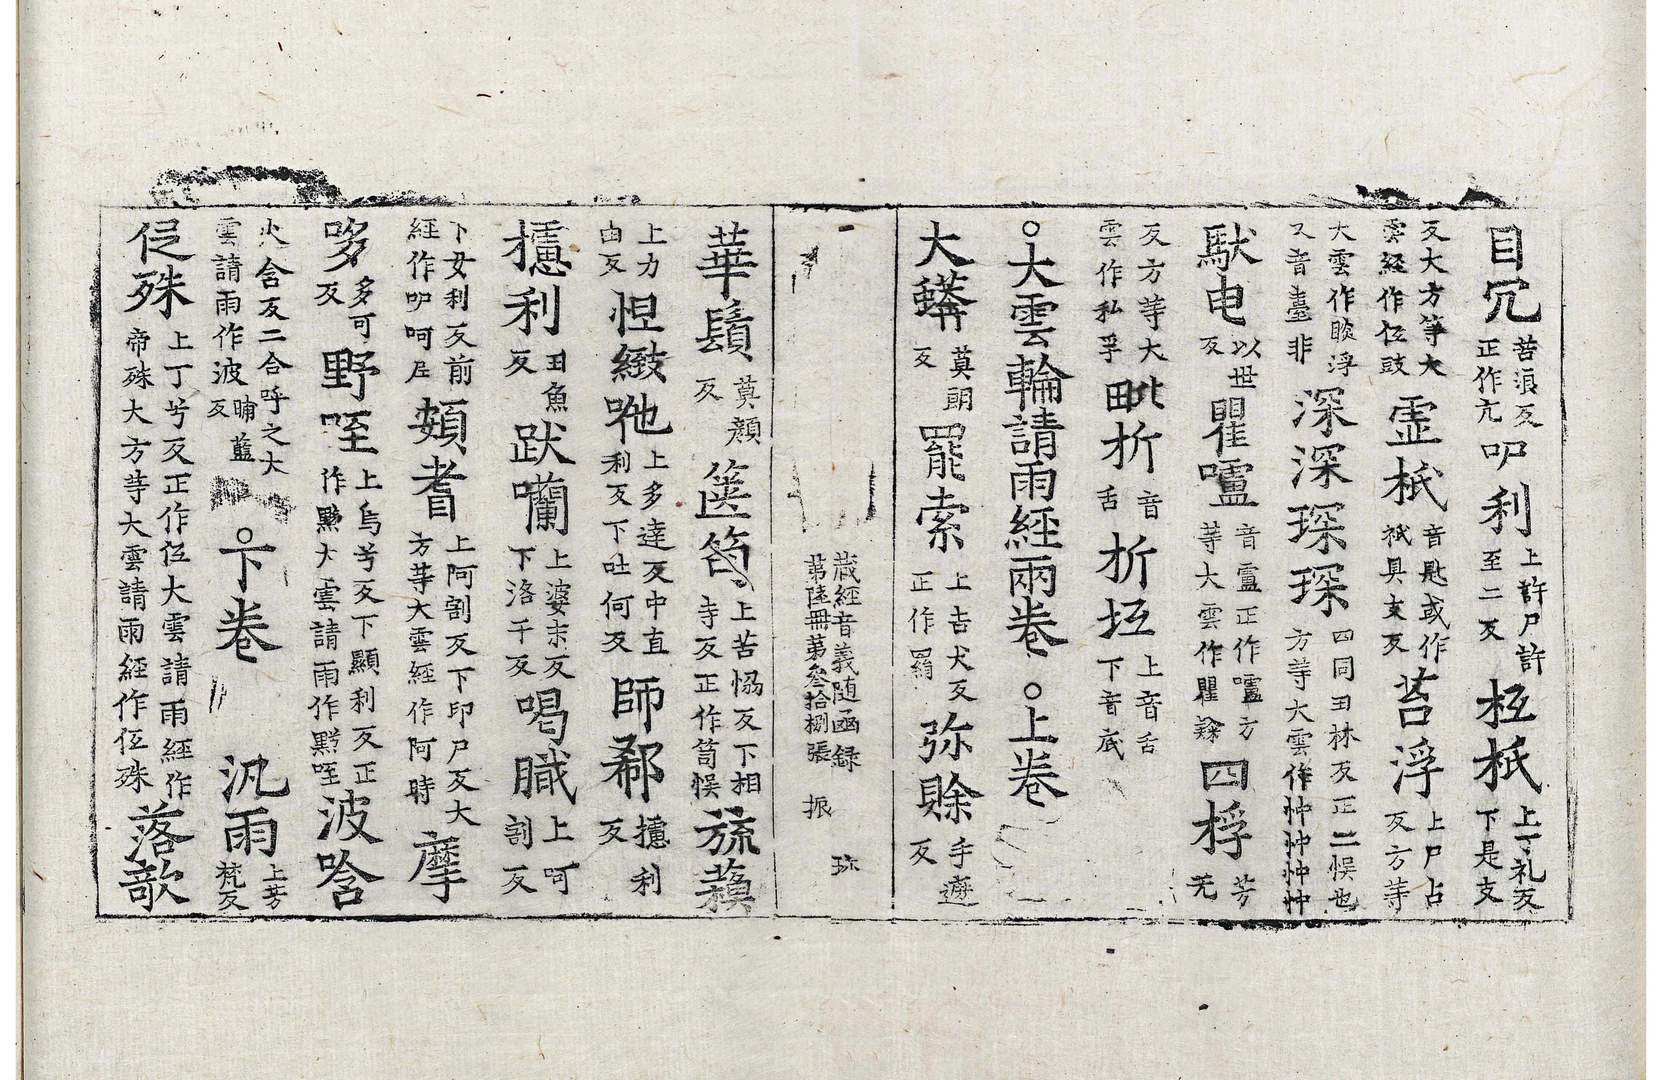 目冗苦浪反正作亢呬利上許尸許至二反㧌秖上丁礼反下是支
反大方等大雲經作伍豉虚秖音尉或作祇具支反苫浮上尸占反方等
大雲作睒浮又音臺非深深琛琛四同丑林反正二悮也方等大雲作忡忡忡忡
馱电以世反瞿嚧音盧正作嚧方等大雲作瞿㝹四桴芳无
反方等大雲作私孚毗折音舌折㧌上音舌下音底
○大雲輪請雨經兩卷○上卷
大蟒莫朗反罷索上古犬反正作羂弥賒手遮反
藏經音義随函録
第陸冊第叄拾捌張 振 珎
華鬚莫顔反篋笥上苦恊反下相寺反正作笥悮蔬蘋
上力鹵反怛緻咃上多達反中直利反下吐何反師郗攄利反
攄利丑魚反跋囒上婆末反下洛干反喝膱上呵割反
下女利反前經作呬呵𡰱頞耆上阿割反下印尸反大方等大雲經作阿時摩
哆多可反野咥上烏兮反下顯利反正作黟大雲請雨作黟咥波唅
火含反二合呼之大雲請雨作波㖔藍反○下卷 汎雨上芳梵反
伲殊上丁兮反正作㐌大雲請雨經作帝殊大方等大雲請雨經作㐌殊落歆